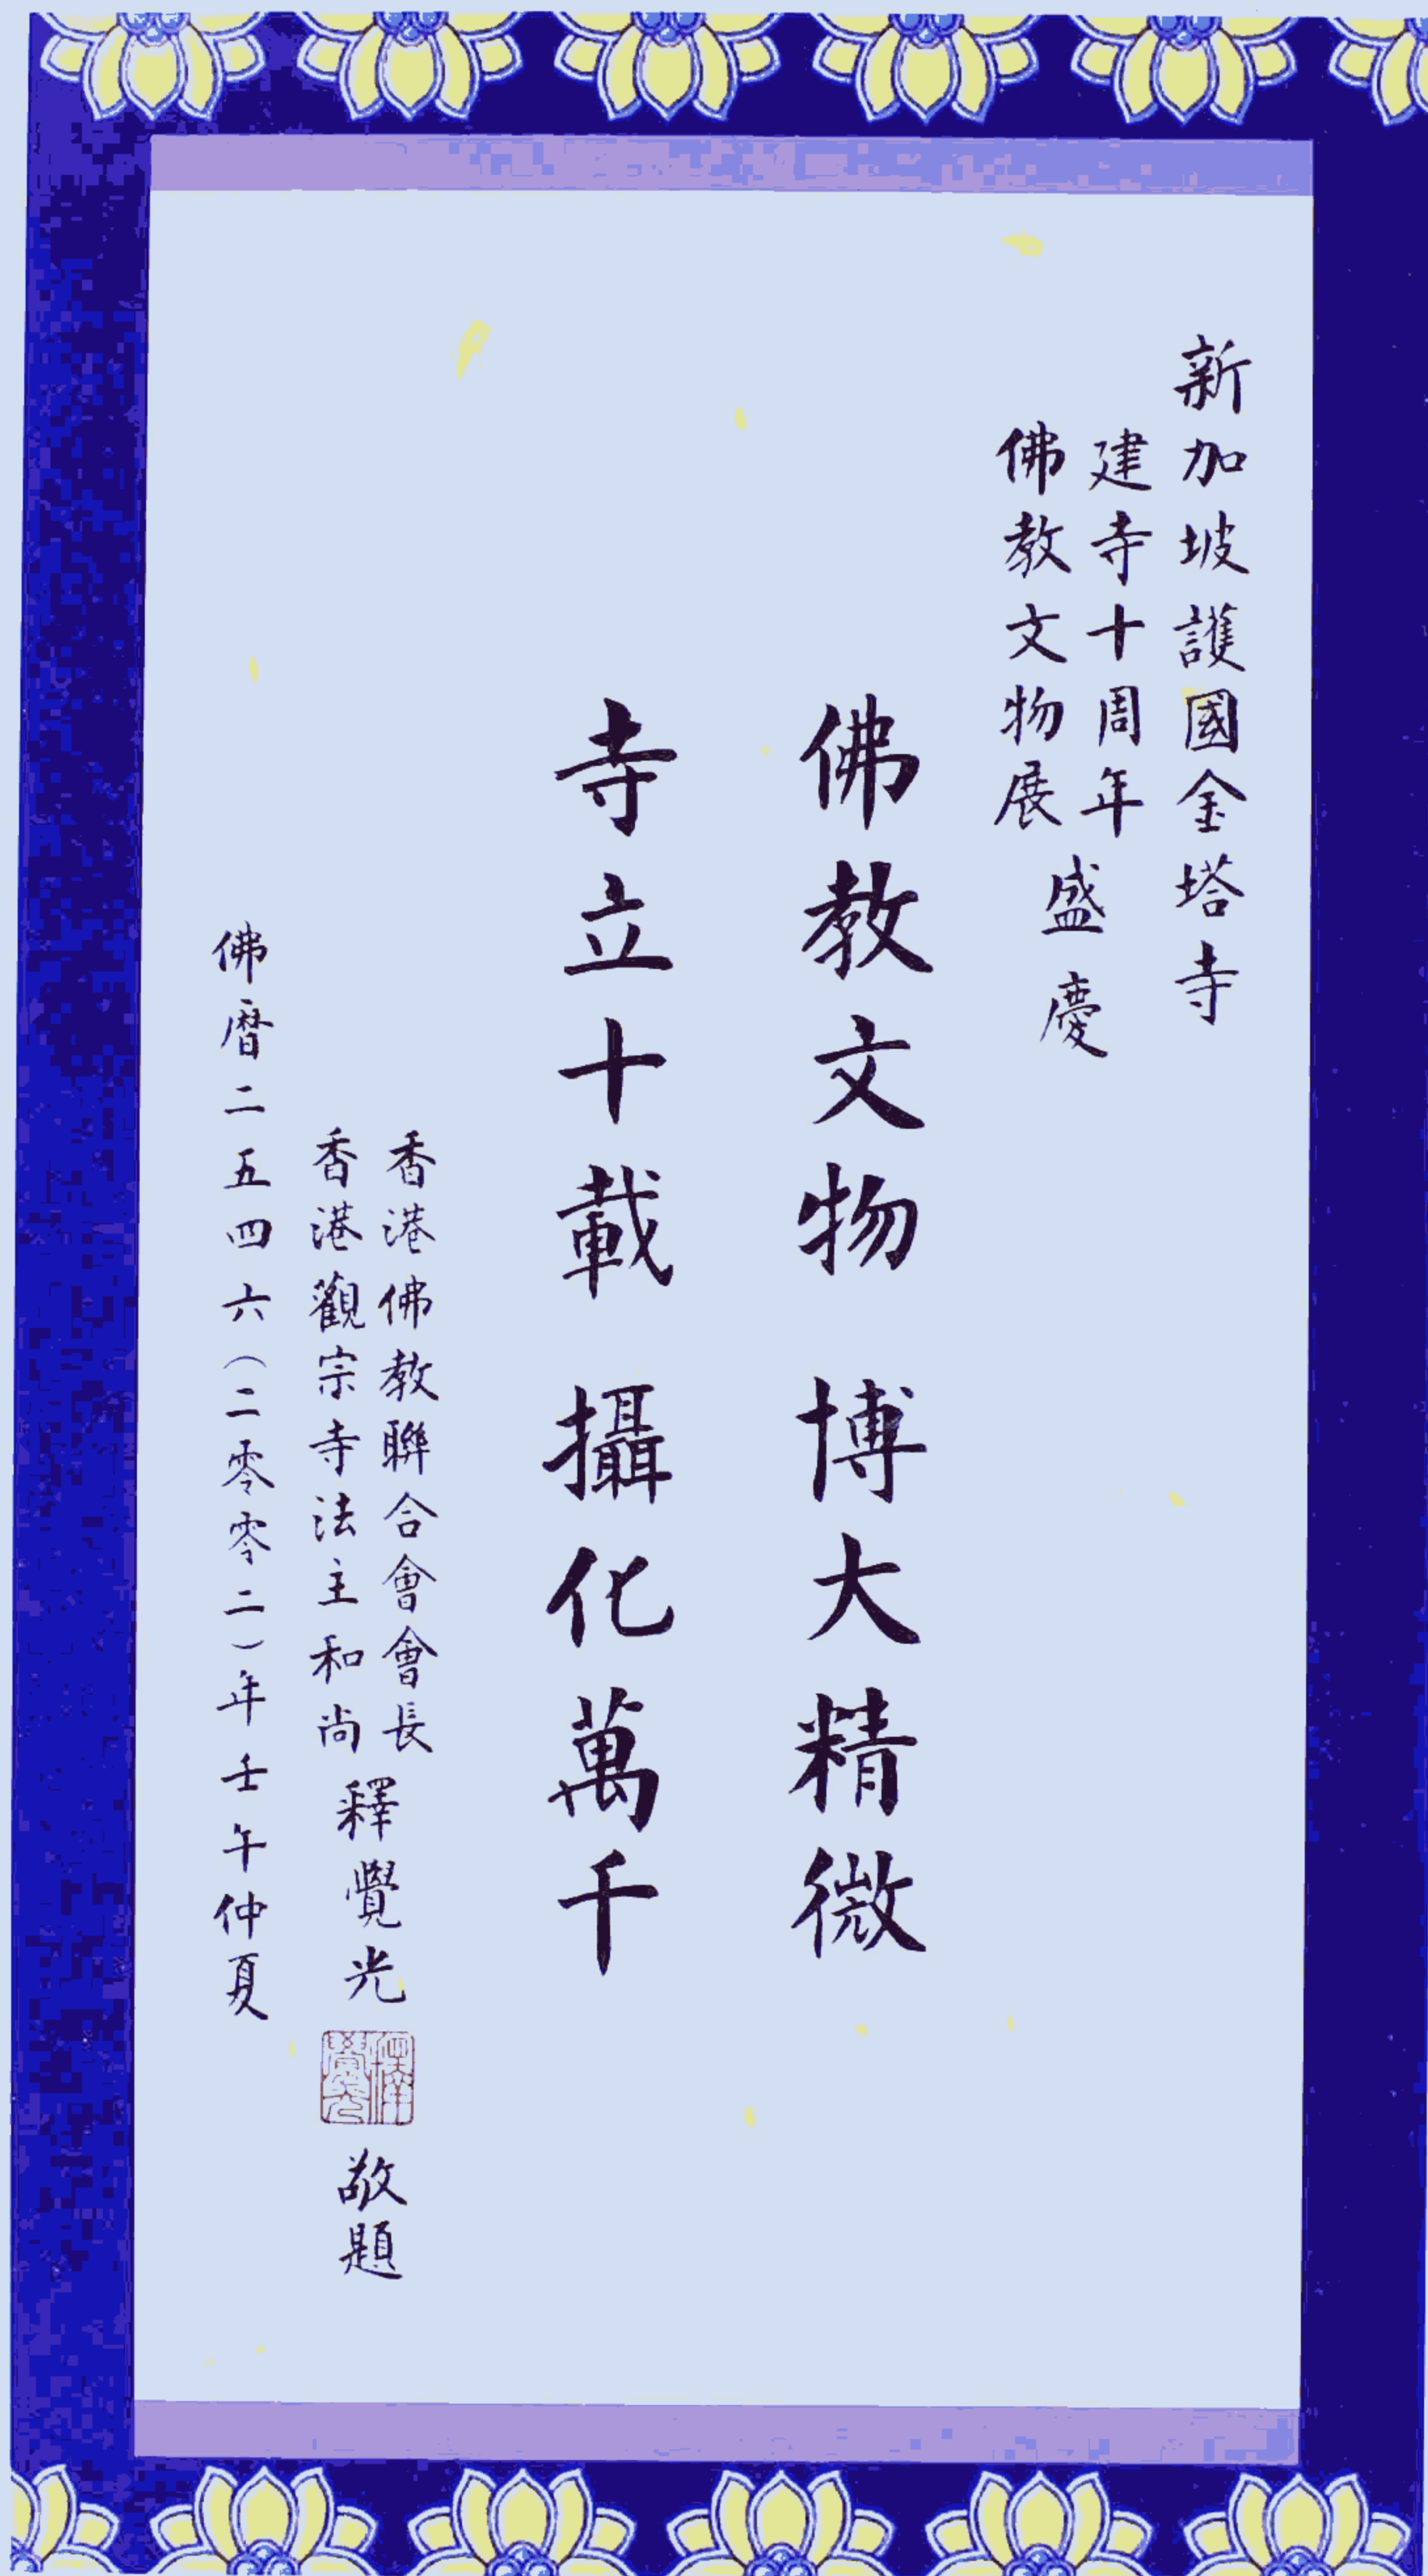 新加坡護國金塔寺
建寺十周年
佛教文物展
盛慶
佛教文物 博大精微
寺立十載 攝化萬千
香港佛教聯合會會長
香港觀宗寺法主和尚
釋覺光
敬題
佛曆二五四六（二零零二）年壬午仲夏